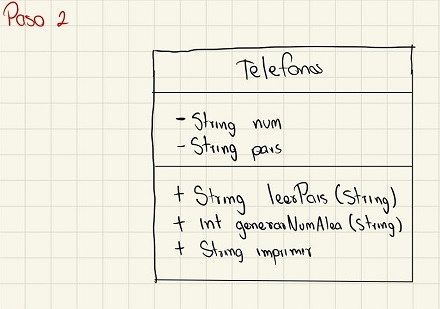 Paso 2
Telefonos
- String num
- String pais
+ String leerPais (String)
+ Int generarNumAlea (String)
+ String imprimir